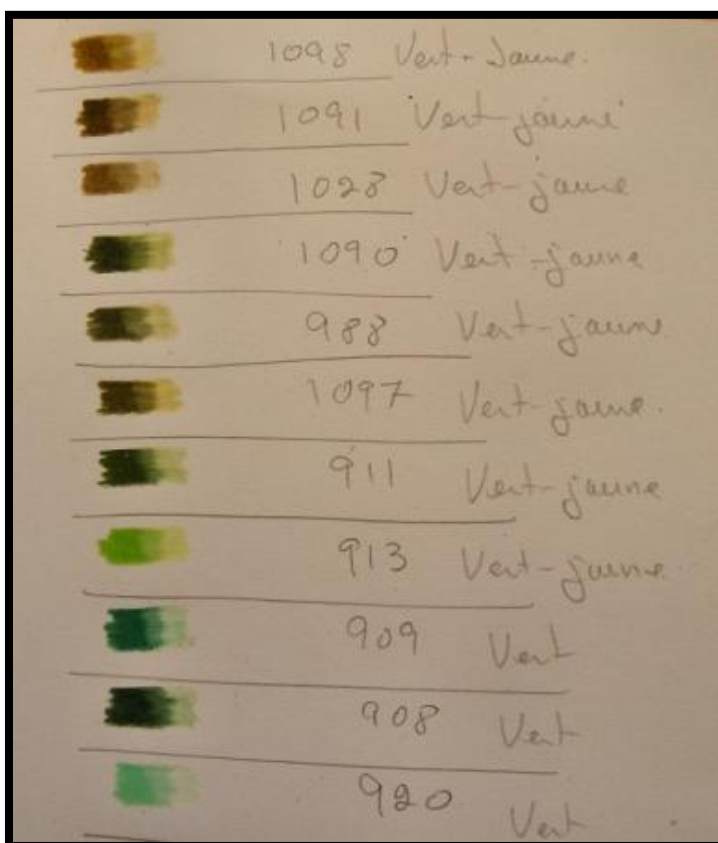 1098 Vert-Jaune.
1091 Vert-jaune
1028 Vert-jaune
1090 Vert-jaune
988 Vert-jaune
1097 Vert-jaune.
911 Vert-jaune
913 Vert-jaune
909 Vert
908 Vert
920 Vert